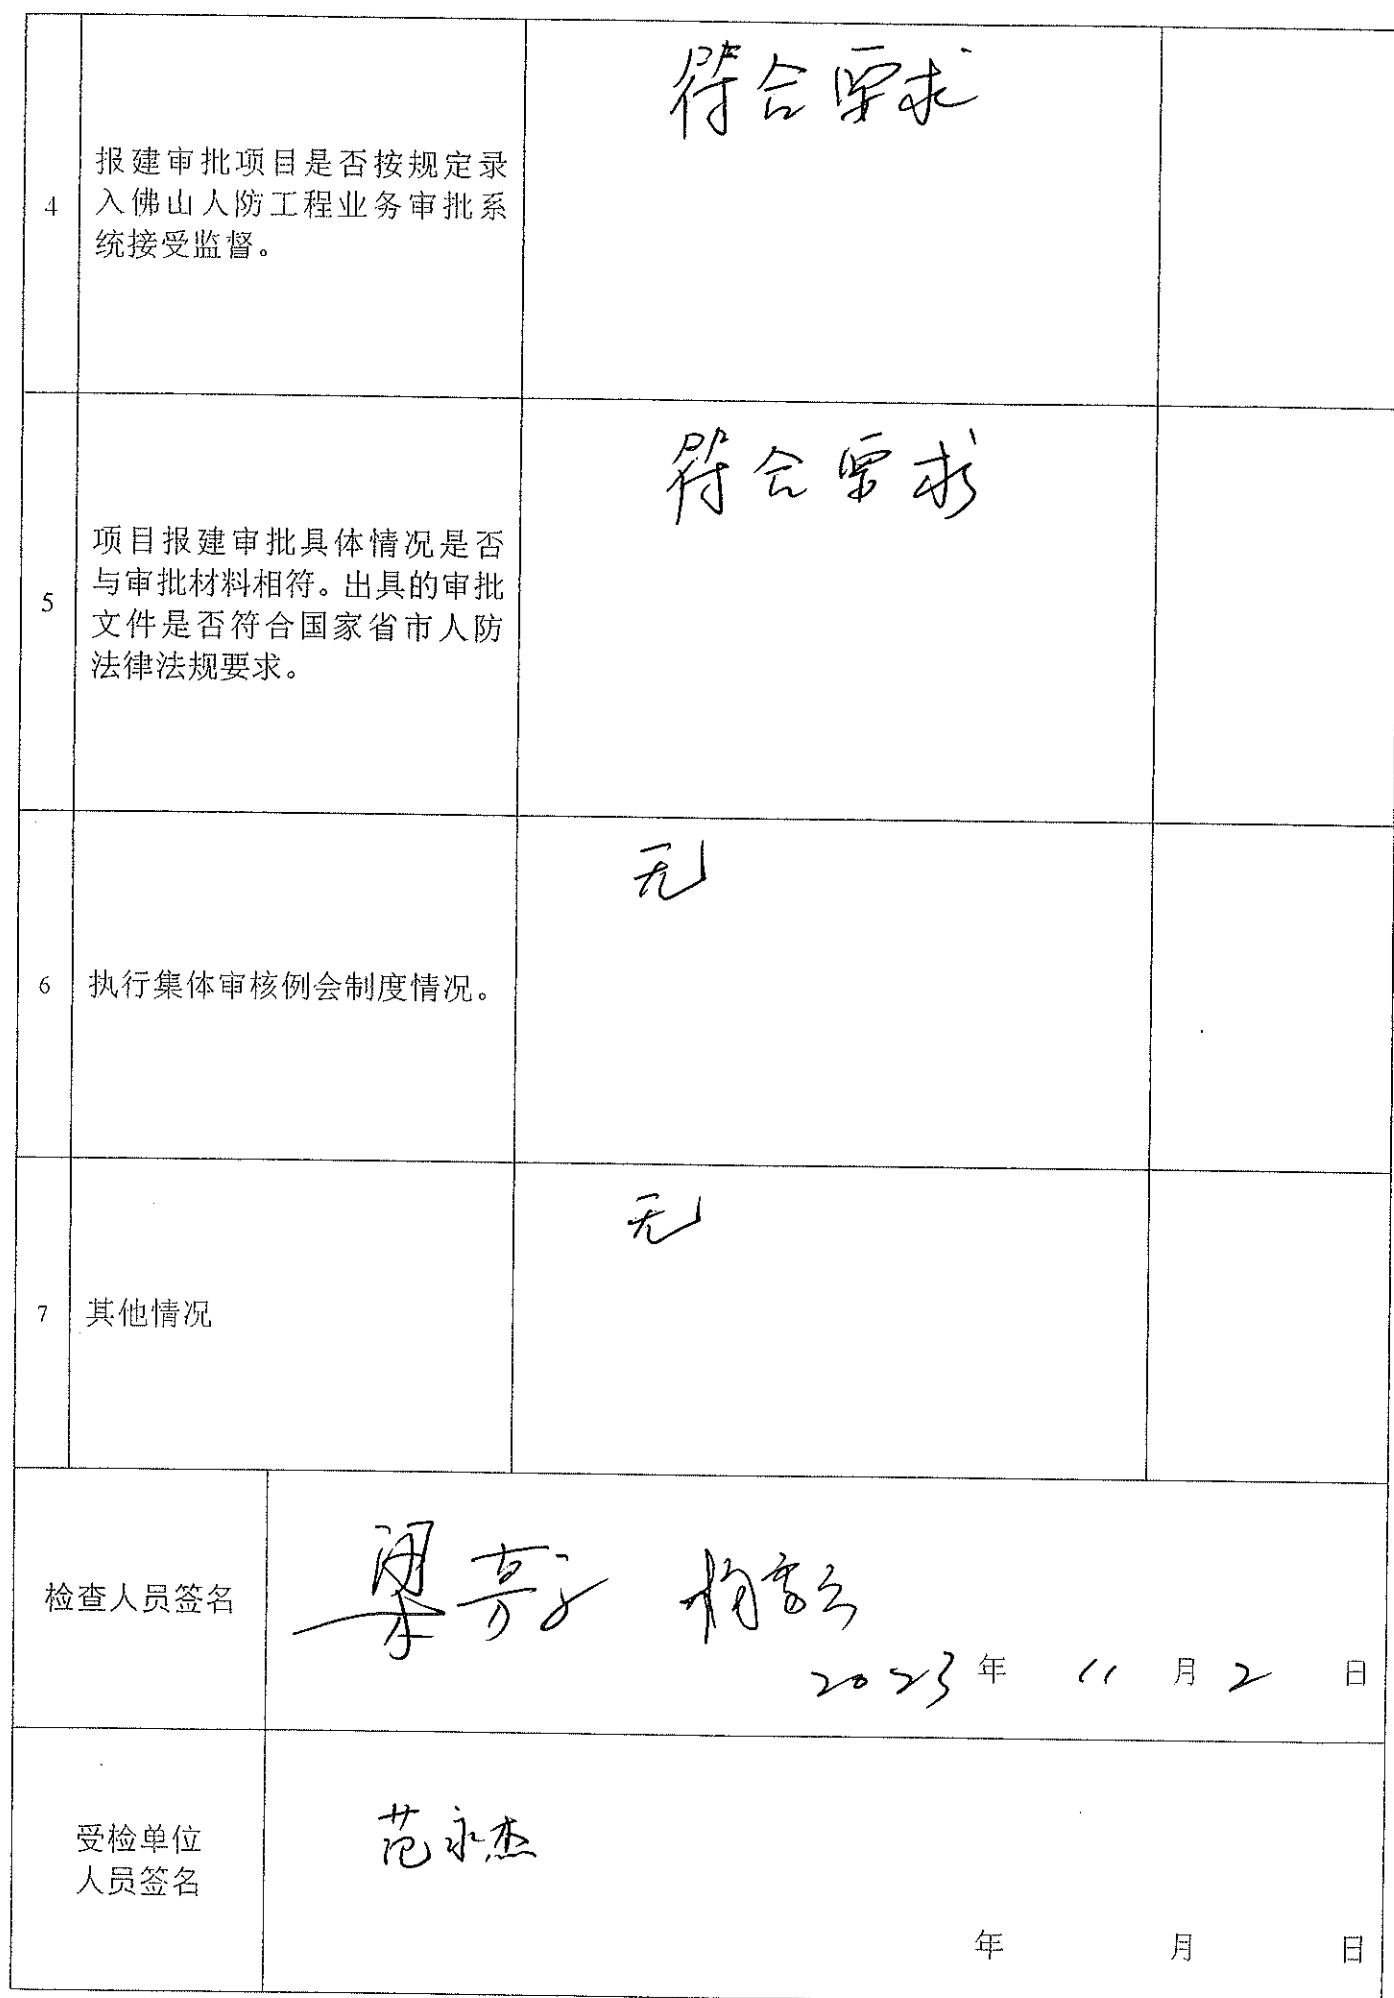 符合要求
报建审批项目是否按规定录
4
入佛山人防工程业务审批系
统接受监督。
符合要求
项目报建审批具体情况是否
与审批材料相符。出具的审批
5
文件是否符合国家省市人防
法律法规要求。
无
6 执行集体审核例会制度情况。
无
7 其他情况
检查人员签名
梁
2023年 11月2日
受检单位
人员签名
范永杰
年 月 日